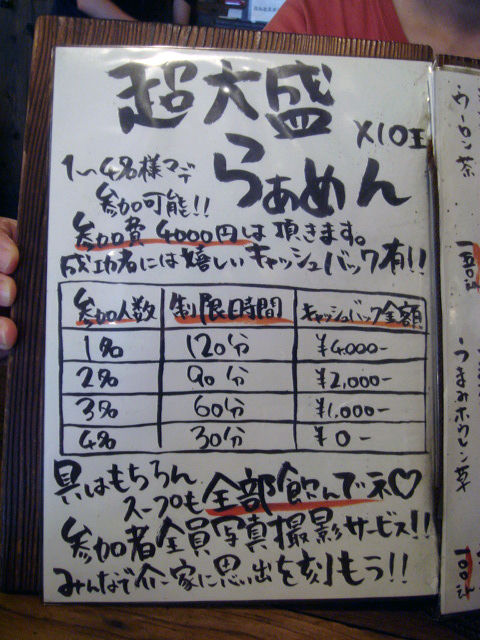 超大盛
らぁめん ×10玉
1〜4名様マデ
参加可能!!
参加費4000円は頂きます。
成功者には嬉しいキャッシュバック有!!
参加人数 制限時間 キャッシュバック金額
1名 120分 ¥4,000-
2名 90分 ¥2,000-
3名 60分 ¥1,000-
4名 30分 ¥0-
具はもちろん
スープも全部飲んでネ♡
参加者全員写真撮影サービス!!
みんなで介一家に思い出を刻もう!!
ウーロン茶
つまみホウレン草